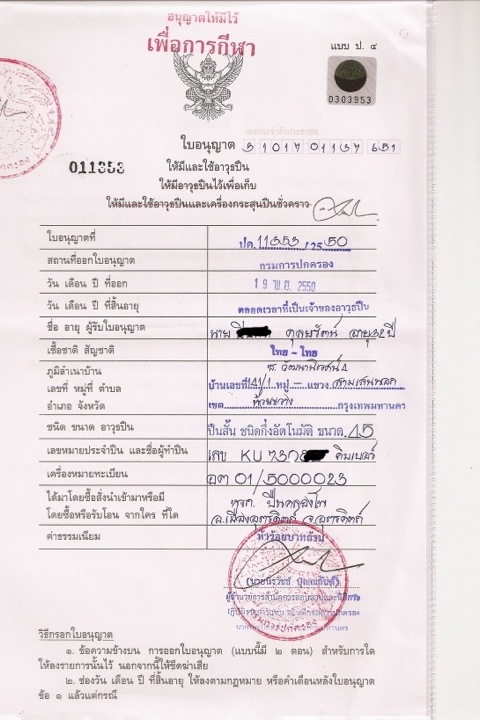 อนุญาตให้มีไว้
เพื่อการกีฬา
แบบ ป. ๔
0303953
เลขประจำตัวประชาชน
ใบอนุญาต 3 1017 01137 65 1
011353
ให้มีและใช้อาวุธปืน
ให้มีอาวุธปืนไว้เพื่อเก็บ
ให้มีและใช้อาวุธปืนและเครื่องกระสุนปืนชั่วคราว
ใบอนุญาตที่ ปค.11353/2550
สถานที่ออกใบอนุญาต กรมการปกครอง
วัน เดือน ปี ที่ออก 19 พ.ย. 2550
วัน เดือน ปี ที่สิ้นอายุ ตลอดเวลาที่เป็นเจ้าของอาวุธปืน
ชื่อ อายุ ผู้รับใบอนุญาต นาย กุลยรัตน์ อายุ 32 ปี
เชื้อชาติ สัญชาติ ไทย - ไทย
ภูมิลำเนาบ้าน
เลขที่ หมู่ที่ ตำบล บ้านเลขที่ 141/1 หมู่ - แขวง สามเสนนอก
อำเภอ จังหวัด เขต ห้วยขวาง กรุงเทพมหานคร
ชนิด ขนาด อาวุธปืน ปืนสั้น ชนิดกึ่งอัตโนมัติ ขนาด .45
เลขหมายประจำปืน และชื่อผู้ทำปืน เลข KU 730 คิมเบอร์
เครื่องหมายทะเบียน อต 01/5000023
ได้มาโดยซื้อสั่งนำเข้ามาหรือมี หจก. ปืนคลองโพ
โดยซื้อหรือรับโอน จากใคร ที่ใด อ.เมืองอุตรดิตถ์ จ.อุตรดิตถ์
ค่าธรรมเนียม ห้าร้อยบาทถ้วน
กรมการปกครอง
วิธีกรอกใบอนุญาต
๑. ข้อความข้างบน การออกใบอนุญาต (แบบนี้มี ๒ ตอน) สำหรับการใด
ให้ลงรายการนั้นไว้ นอกจากนี้ให้ขีดฆ่าเสีย
๒. ช่องวัน เดือน ปี ที่สิ้นอายุ ให้ลงตามกฎหมาย หรือกำเดือนหลังใบอนุญาต
ข้อ ๑ แล้วแต่กรณี